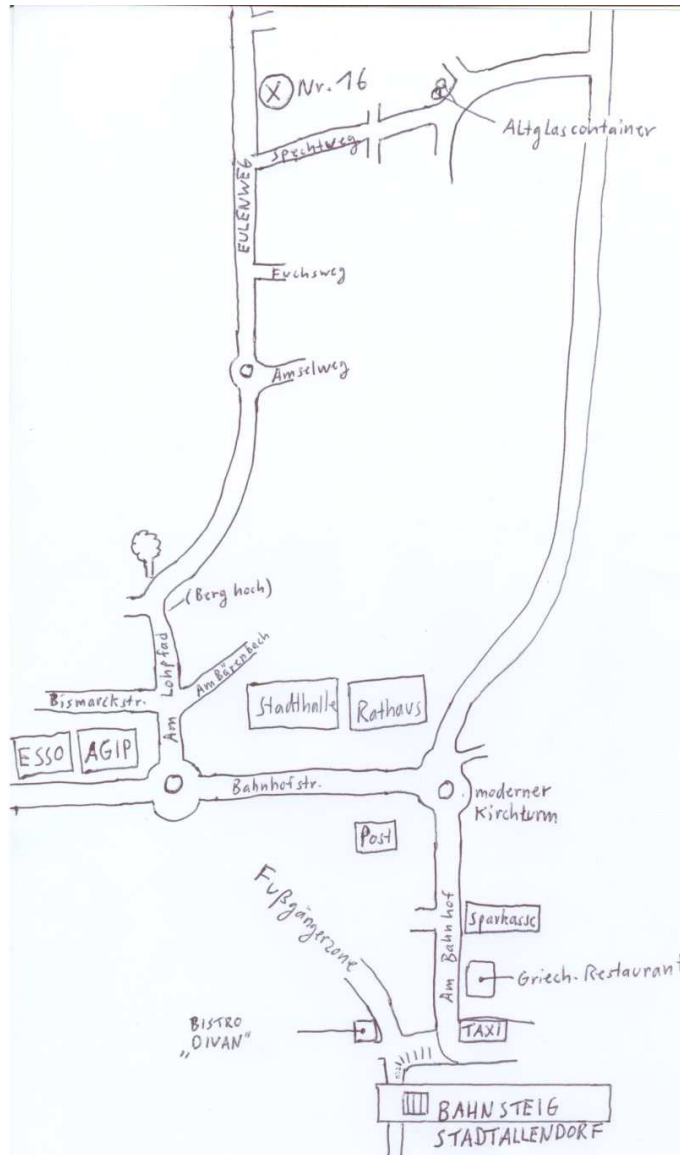 X Nr. 16
Altglascontainer
Spechtweg
EULENWEG
Fuchsweg
Amselweg
(Berg hoch)
Am Lohpfad
Am Bärenbach
Bismarckstr.
Stadthalle
Rathaus
ESSO
AGIP
Bahnhofstr.
moderner
Kirchturm
Post
Fußgängerzone
Am Bahnhof
Sparkasse
Griech. Restaurant
BISTRO
„DIVAN“
TAXI
BAHNSTEIG
STADTALLENDORF